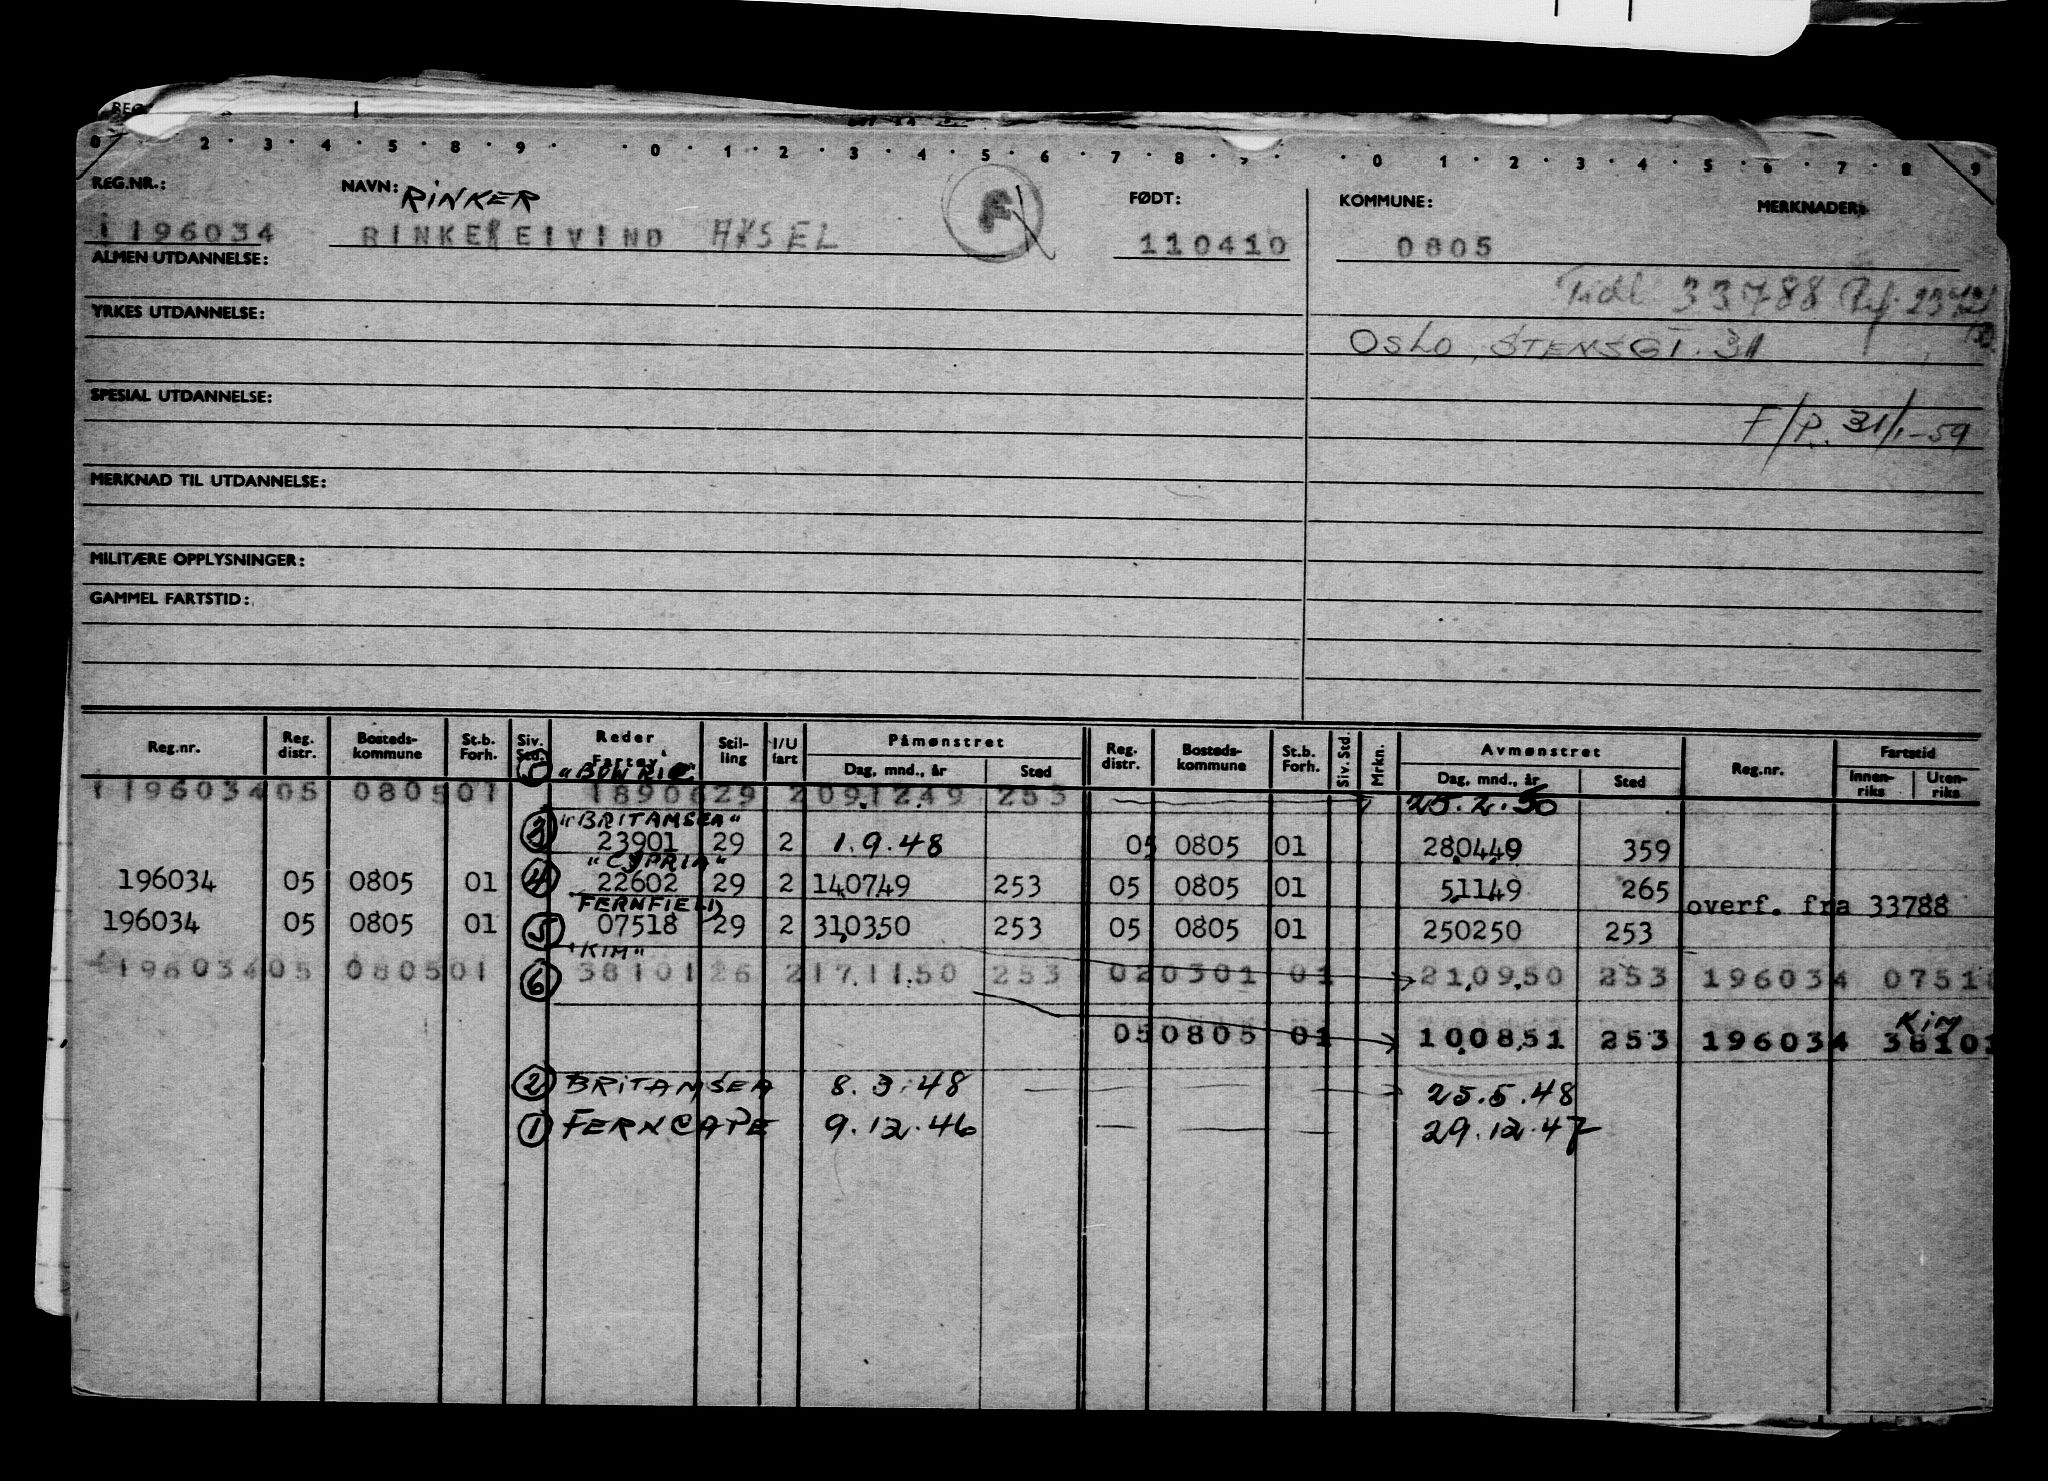 REG.
0 · 2 · 3 · 4 · 5 · 8 · 9 · · 0 · 1 · 2 · 3 · 4 · 5 · 6 · 7 · 8 · · 0 · 1 · 2 · 3 · 4 · 5 · 6 · 7 · 8 · 9
REG.NR.: NAVN: RINKER FØDT: KOMMUNE: MERKNADER:
196034 RINKER EIVIND AKSEL F 110410 0805
ALMEN UTDANNELSE:
Tidl 33788
YRKES UTDANNELSE:
OSLO, STENSGT. 31
SPESIAL UTDANNELSE:
F/P. 31/1-59
MERKNAD TIL UTDANNELSE:
MILITÆRE OPPLYSNINGER:
GAMMEL FARTSTID:
Reg.nr. Reg. distr. Bosteds- kommune St.b. Forh. Siv. Std. Reder Fartøy Stil- ling I/U fart Påmønstret Dag, mnd., år Sted Reg. distr. Bosteds- kommune St.b. Forh. Siv. Std. Mrkn. Avmønstret Dag, mnd., år Sted Reg.nr. Fartstid Innen- riks Uten- riks
196034 05 0805 01 18906 29 2 091249 253 25.2.50
③ "BRITAMSEA"
23901 29 2 1.9.48 05 0805 01 280449 359
"CYPRIA"
196034 05 0805 01 ④ 22602 29 2 140749 253 05 0805 01 51149 265
FERNFIELD overf. fra 33788
196034 05 0805 01 ⑤ 07518 29 2 310350 253 05 0805 01 250250 253
"KIM"
196034 05 0805 01 ⑥ 38101 26 2 171150 253 02 0301 01 210950 253 196034 0751
KIM
05 0805 01 100851 253 196034 38101
② BRITAMSEA 8.3.48 25.5.48
① FERNCAPE 9.12.46 29.12.47